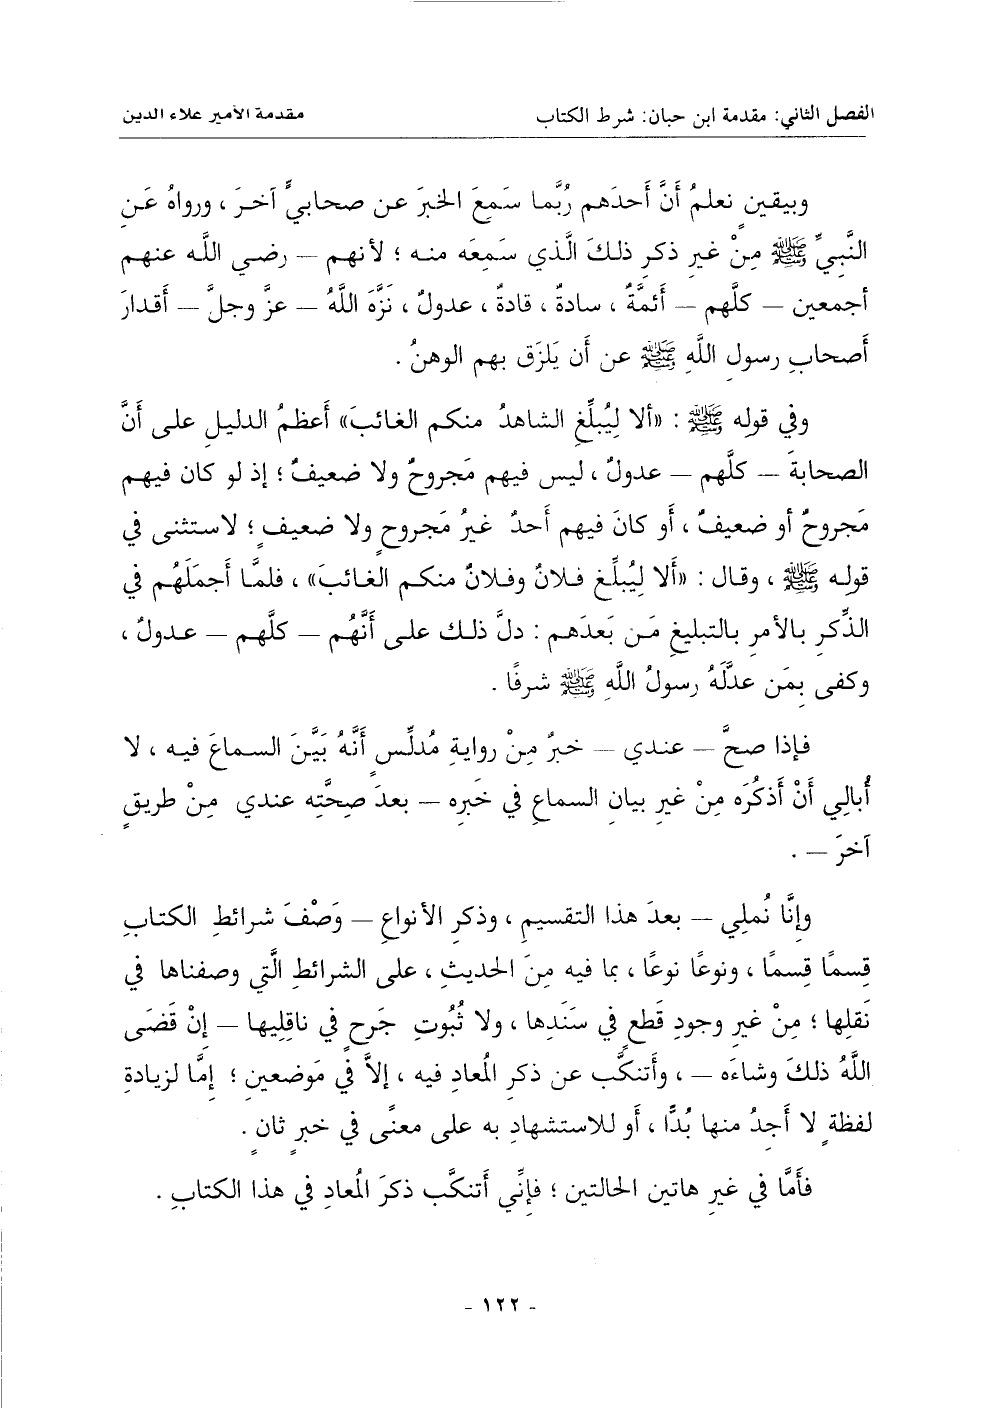 الفصل الثاني: مقدمة ابن حبان: شرط الكتاب مقدمة الأمير علاء الدين
وبيقينٍ نعلمُ أَنَّ أَحدَهم رُبَّما سَمِعَ الخبرَ عن صحابيٍّ آخرَ ، ورواهُ عَنِ
النَّبِيِّ ﷺ مِنْ غيرِ ذكرِ ذلكَ الَّذي سَمِعَه منه ؛ لأنهم – رضي اللَّه عنهم
أجمعين – كلَّهم – أئمَّةٌ ، سادةٌ ، قادةٌ ، عدولٌ ، نَزَّهَ اللَّهُ – عزَّ وجلَّ – أَقدارَ
أَصحابِ رسولِ اللَّهِ ﷺ عن أَن يَلزَق بهم الوهنُ .
وفي قولِه ﷺ : «ألا لِيُبلِّغِ الشاهدُ منكم الغائبَ» أَعظمُ الدليلِ على أَنَّ
الصحابةَ – كلَّهم – عدولٌ ، ليس فيهم مَجروحٌ ولا ضعيفٌ ؛ إذ لو كان فيهم
مَجروحٌ أو ضعيفٌ ، أَو كانَ فيهم أَحدٌ غيرُ مَجروحٍ ولا ضعيفٍ ؛ لاستثنى في
قولِه ﷺ ، وقال : «أَلا لِيُبلِّغ فلانٌ وفلانٌ منكم الغائبَ» ، فلمَّا أَجملَهُم في
الذِّكرِ بالأمرِ بالتبليغِ مَن بَعدَهم : دلَّ ذلك على أَنَّهُم – كلَّهم – عدولٌ ،
وكفى بِمَن عدَّلَهُ رسولُ اللَّهِ ﷺ شرفًا .
فإذا صحَّ – عندي – خبرٌ مِنْ روايةِ مُدلِّسٍ أَنَّهُ بَيَّنَ السماعَ فيه ، لا
أُبالِي أَنْ أَذكُرَه مِنْ غيرِ بيانِ السماعِ في خَبرِه – بعدَ صِحَّتِه عندي مِنْ طريقٍ
آخرَ – .
وإنَّا نُملِي – بعدَ هذا التقسيمِ ، وذكرِ الأنواعِ – وَصْفَ شرائطِ الكتابِ
قِسمًا قِسمًا ، ونوعًا نوعًا ، بما فيه مِنَ الحديثِ ، على الشرائطِ الَّتي وصفناها في
نَقلِها ؛ مِنْ غيرِ وجودِ قطعٍ في سَنَدِها ، ولا ثُبُوتِ جَرحٍ في ناقِلِيها – إِنْ قَضَى
اللَّهُ ذلكَ وشاءَه – ، وأَتنكَّب عن ذكرِ المُعادِ فيه ، إلاَّ في مَوضعينِ ؛ إِمَّا لزيادةِ
لفظةٍ لا أَجدُ منها بُدًّا ، أَو للاستشهادِ به على معنًى في خبرٍ ثانٍ .
فأَمَّا في غيرِ هاتين الحالتين ؛ فإنِّي أَتنكَّب ذكرَ المُعادِ في هذا الكتابِ .
- ١٢٢ -